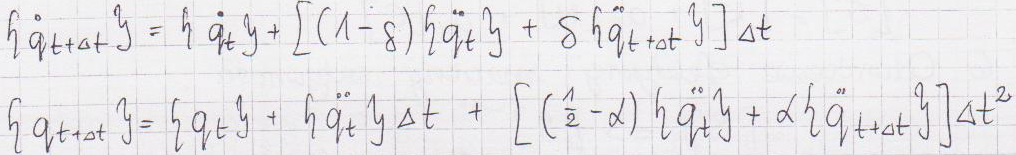 {q̇_{t+Δt}} = {q̇_t} + [(1-δ){q̈_t} + δ{q̈_{t+Δt}}]Δt
{q_{t+Δt}} = {q_t} + {q̈_t}Δt + [(1/2-α){q̈_t} + α{q̈_{t+Δt}}]Δt²